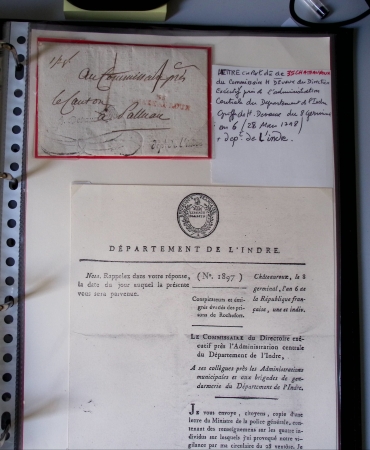 au Commissaire près
le Canton
à Pallnau
LETTRE
du Commissaire H Devaux du Directoire
Exécutif près de l'administration
Centrale du Département de l'Indre
H. Devaux du 8 Germinal
an 6 / 28 Mars 1798)
+ dept. de L'indre.
DÉPARTEMENT DE L'INDRE.
Nota. Rappelez dans votre réponse,
la date du jour auquel la présente
vous sera parvenue.
(N°. 1897)
Conspirateurs et émi-
grés évadés des pri-
sons de Rochefort.
Châteauroux, le 8
germinal, l'an 6 de
la République fran-
çaise, une et indiv.
Le Commissaire du Directoire exé-
cutif près l'Administration centrale
du Département de l'Indre,
A ses collègues près les Administrations
municipales et aux brigades de gen-
darmerie du Département de l'Indre.
Je vous envoye, citoyens, copie d'une
lettre du Ministre de la police générale, con-
tenant des renseignemens sur les quatre in-
dividus sur lesquels j'ai provoqué votre vi-
gilance par ma circulaire du 28 ventôse. Je